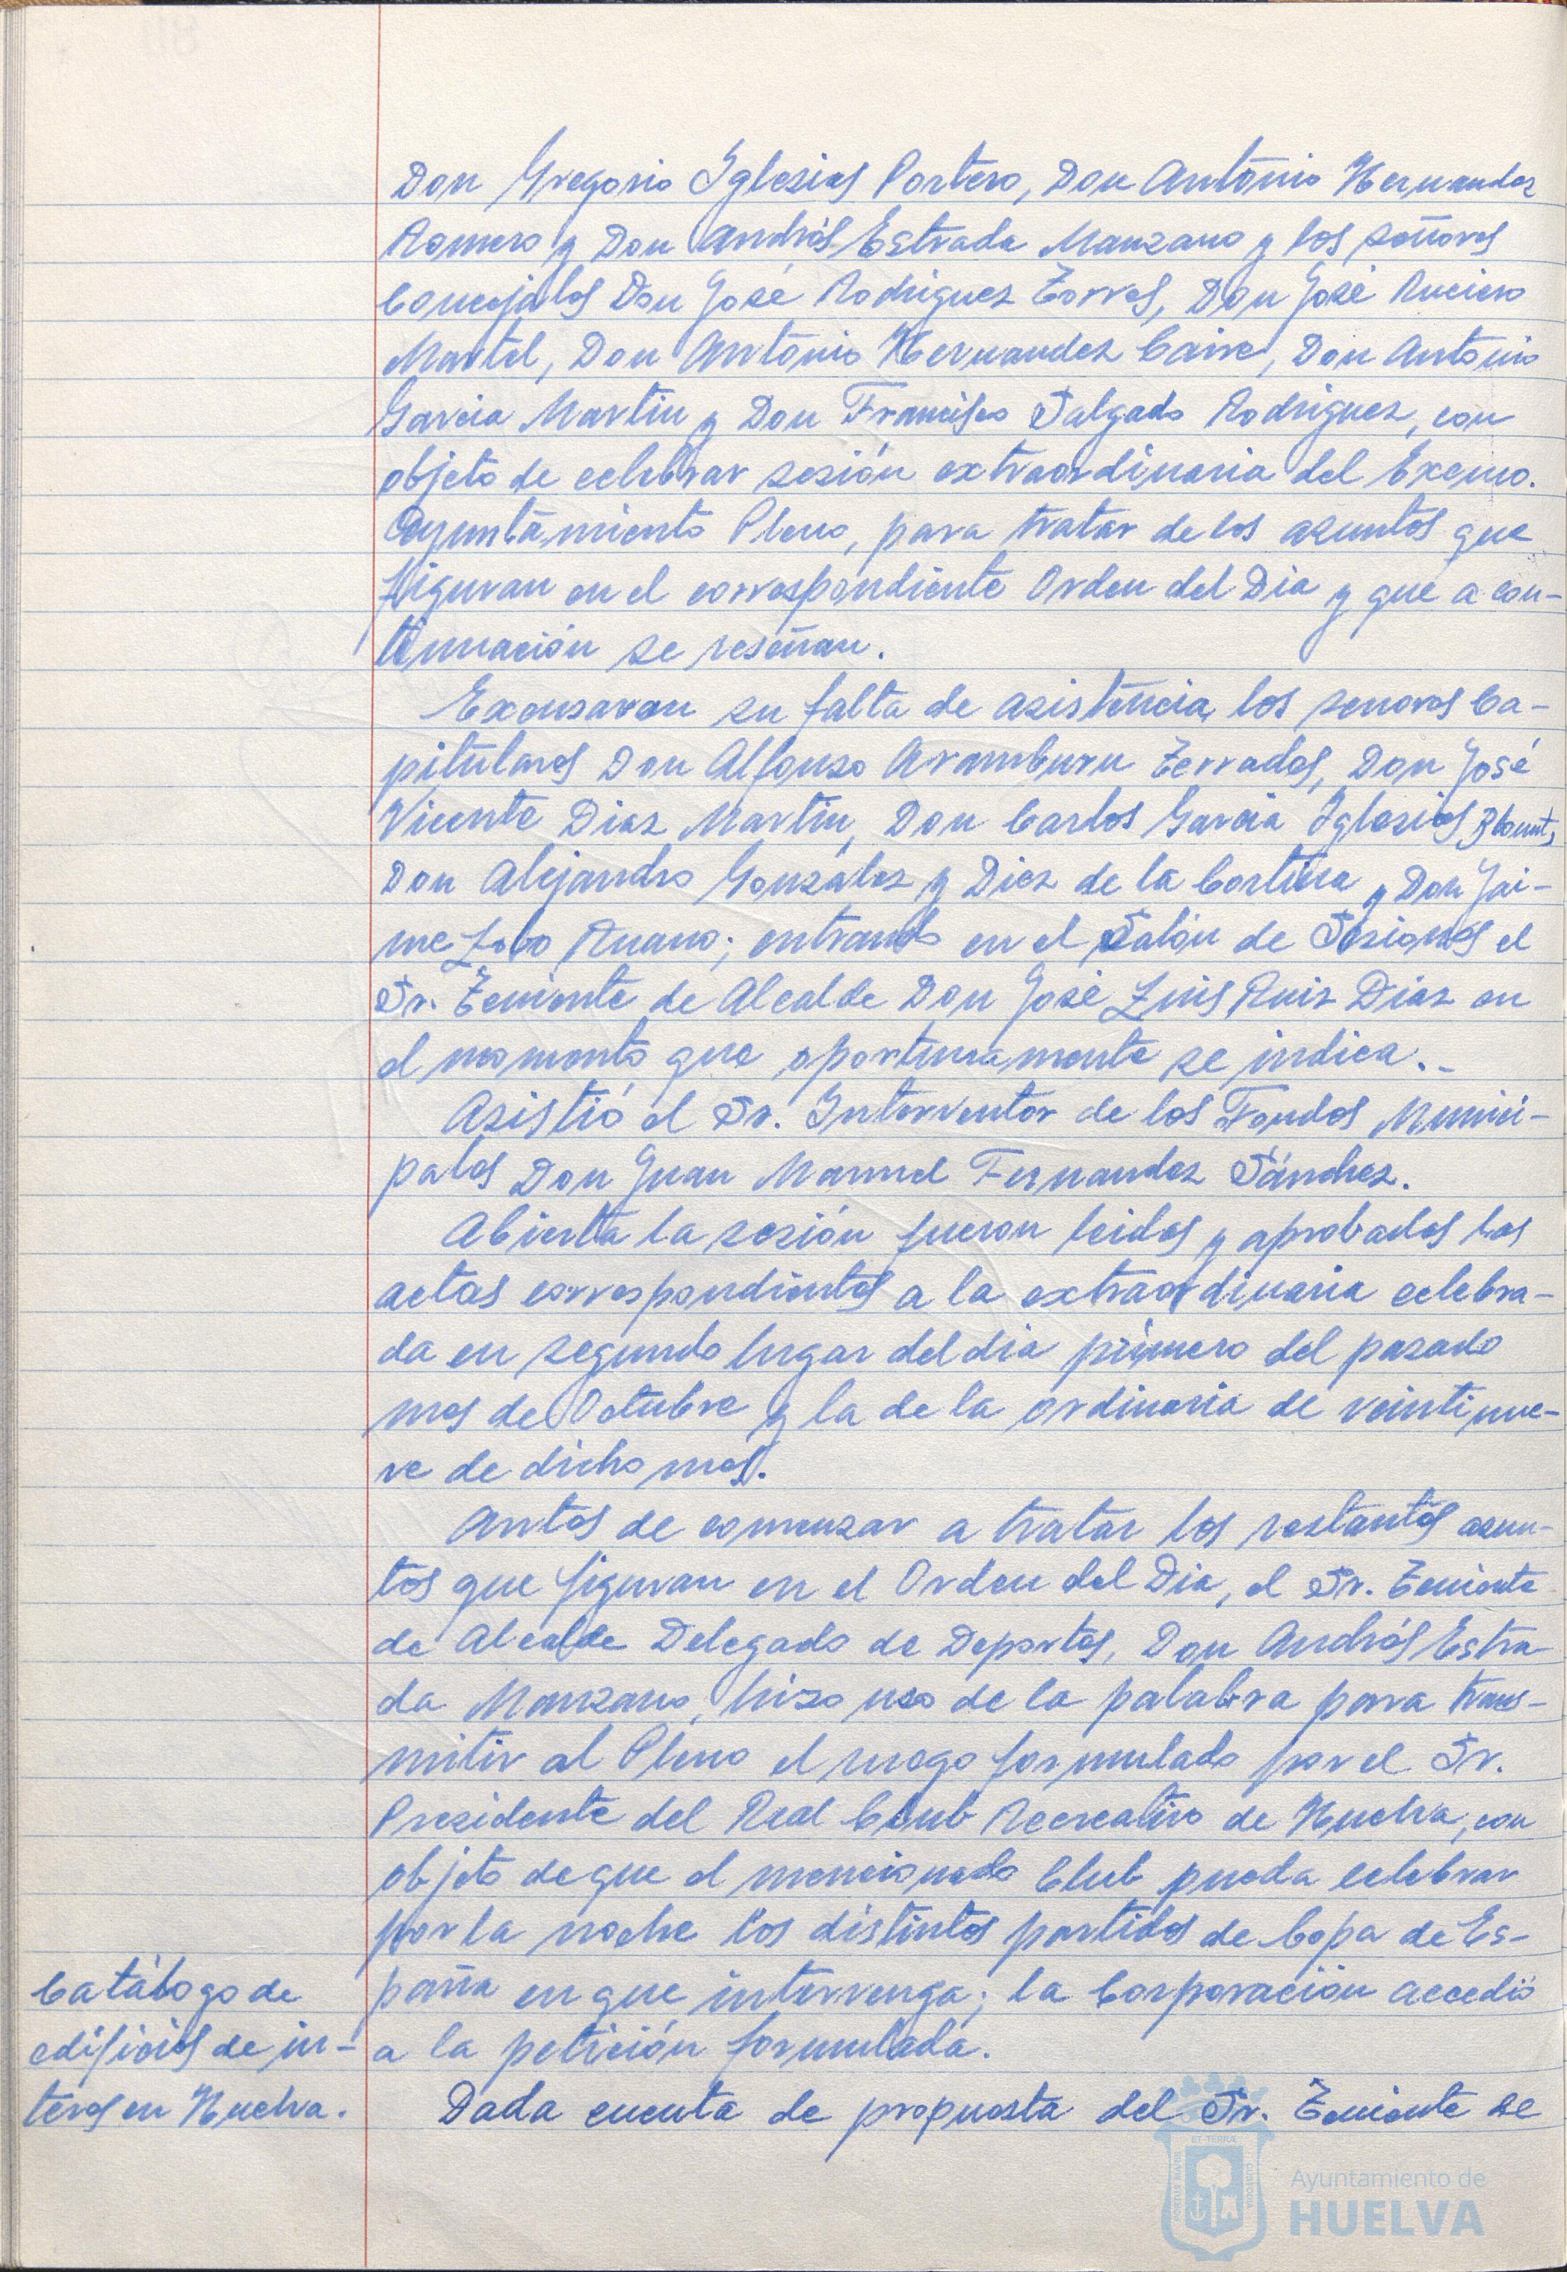 Don Gregorio Iglesias Portero, Don Antonio Hernandez
Romero y Don Andrés Estrada Manzano y los señores
Concejales Don José Rodriguez Torres, Don José Ruciero
Martel, Don Antonio Hernandez Caire, Don Antonio
Garcia Martin y Don Francisco Salgado Rodriguez, con
objeto de celebrar sesión extraordinaria del Excmo.
Ayuntamiento Pleno, para tratar de los asuntos que
figuran en el correspondiente Orden del Dia y que a con-
tinuación se reseñan.
Excusaron su falta de asistencia, los senores Ca-
pitulares Don Alfonso Aramburu Terrades, Don José
Vicente Diaz Martin, Don Carlos Garcia Iglesias,
Don Alejandro Gonzalez y Diez de la Cortina y Don Jai-
me Lobo Ruano; entrando en el Salón de Sesiones el
Sr. Teniente de Alcalde Don José Luis Ruiz Diaz en
el momento que oportunamente se indica.-
Asistió el Sr. Interventor de los Fondos Munici-
pales Don Juan Manuel Fernandez Sánchez.
Abierta la sesión fueron leidas y aprobadas las
actas correspondientes a la extraordinaria celebra-
da en segundo lugar del dia primero del pasado
mes de Octubre y la de la ordinaria de veintinue-
ve de dicho mes.
Antes de comenzar a tratar los restantes asun-
tos que figuran en el Orden del Dia, el Sr. Teniente
de Alcalde Delegado de Deportes, Don Andrés Estra-
da Manzano, hizo uso de la palabra para trans-
mitir al Pleno el ruego formulado por el Sr.
Presidente del Real Club Recreativo de Huelva, con
objeto de que el mencionado Club pueda celebrar
por la noche los distintos partidos de Copa de Es-
paña en que intervenga; la Corporación accedió
a la petición formulada.
Catálogo de
edificios de in-
teres en Huelva.
Dada cuenta de propuesta del Sr. Teniente se
ET TERRAE
CUSTODIA
Ayuntamiento de
HUELVA